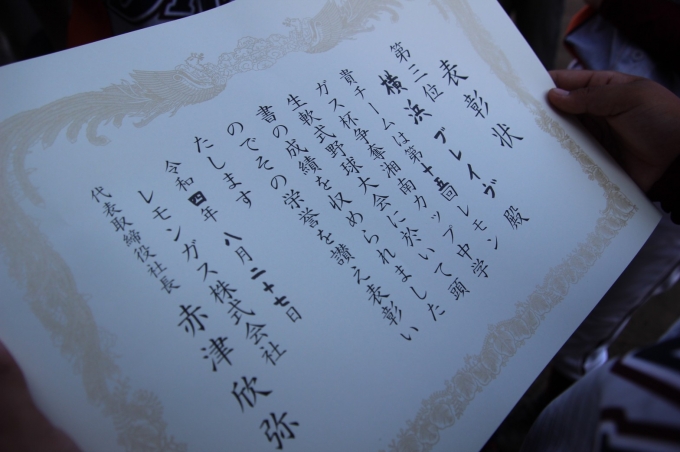 表彰状
第三位 横浜ブレイヴ 殿
貴チームは第十五回レモン
ガス杯争奪湘南カップ中学
生軟式野球大会に於いて頭
書の成績を収められました
のでその栄誉を讃え表彰い
たします
令和四年八月二十七日
レモンガス株式会社
代表取締役社長 赤津欣弥